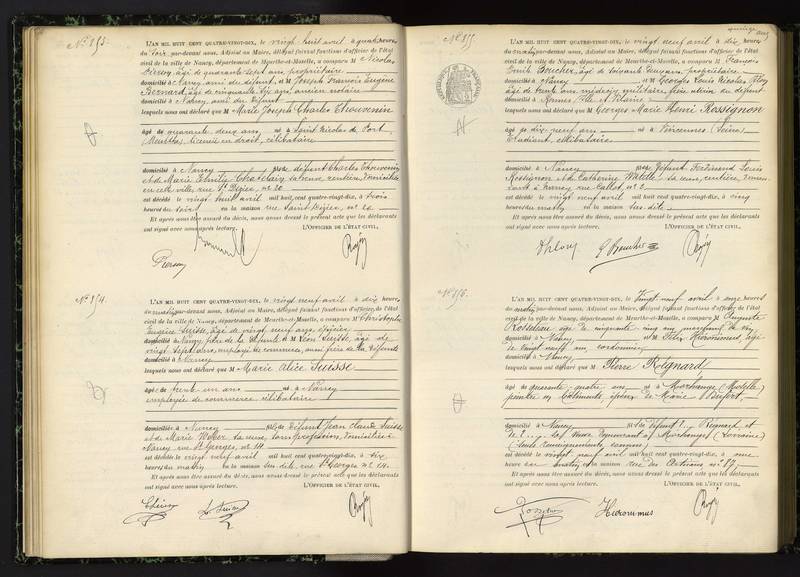 N° 813.
L'AN MIL HUIT CENT QUATRE-VINGT-DIX, le vingt huit avril à quatre heures
du soir par-devant nous, Adjoint au Maire, délégué faisant fonctions d'officier de l'état
civil de la ville de Nancy, département de Meurthe-et-Moselle, a comparu M Nicolas
Pierson, âgé de quarante sept ans, propriétaire
domicilié à Nancy, ami du défunt, et M Joseph François Eugène
Bernard, âgé de cinquante six ans, ancien notaire
domicilié à Nancy, ami du défunt
lesquels nous ont déclaré que M Marie Joseph Charles Thouvenin
âgé de quarante deux ans, né à Saint Nicolas de Port,
Meurthe, licencié en droit, célibataire
domicilié à Nancy fils de défunt Charles Thouvenin
et de Marie Emélie Chatelain sa veuve, rentière, domiciliée
en cette ville, rue St Dizier, n° 20
est décédé le vingt huit avril mil huit cent quatre-vingt-dix, à trois
heures du soir en la maison rue Saint Dizier, n° 20
Et après nous être assuré du décès, nous avons dressé le présent acte que les déclarants
ont signé avec nous après lecture. L'OFFICIER DE L'ÉTAT CIVIL,
Pierson
N° 814.
L'AN MIL HUIT CENT QUATRE-VINGT-DIX, le vingt neuf avril à dix heures
du matin par-devant nous, Adjoint au Maire, délégué faisant fonctions d'officier de l'état
civil de la ville de Nancy, département de Meurthe-et-Moselle, a comparu M Christophe
Eugène Suisse, âgé de vingt neuf ans, épicier
domicilié à Nancy, frère de la défunte et M Léon Suisse, âgé de
vingt sept ans, employé de commerce, aussi frère de la défunte
domicilié à Nancy
lesquels nous ont déclaré que M Marie Alice Suisse
âgée de trente un ans née à Nancy
employée de commerce célibataire
domiciliée à Nancy fille de défunt Jean Claude Suisse
et de Marie Weber sa veuve, sans profession, domiciliée à
Nancy rue St Georges, n° 14
est décédée le vingt neuf avril mil huit cent quatre-vingt-dix, à six
heures du matin en la maison sus dite rue St Georges n° 14.
Et après nous être assuré du décès, nous avons dressé le présent acte que les déclarants
ont signé avec nous après lecture. L'OFFICIER DE L'ÉTAT CIVIL,
N° 815
quinze ans
L'AN MIL HUIT CENT QUATRE-VINGT-DIX, le vingt neuf avril à dix heures
du matin par-devant nous, Adjoint au Maire, délégué faisant fonctions d'officier de l'état
civil de la ville de Nancy, département de Meurthe-et-Moselle, a comparu M François
Emile Boucher, âgé de soixante ans, propriétaire
domicilié à Nancy et M Georges Louis Nicolas
âgé de trente ans, médecin militaire, du défunt
domicilié à Rennes, Ille et Vilaine
lesquels nous ont déclaré que M Georges Marie Henri Rossignon
âgé de dix neuf ans né à Vincennes (Seine)
Etudiant, célibataire
domicilié à Nancy fils de défunt Ferdinand Louis
Rossignon et de Catherine sa veuve, rentière,
à Nancy rue Callot, n° 2
est décédé le vingt neuf avril mil huit cent quatre-vingt-dix, à cinq
heures du matin en la maison sus-dite
Et après nous être assuré du décès, nous avons dressé le présent acte que les déclarants
ont signé avec nous après lecture. L'OFFICIER DE L'ÉTAT CIVIL,
E Boucher
N° 816.
L'AN MIL HUIT CENT QUATRE-VINGT-DIX, le vingt neuf avril à onze heures
du matin par-devant nous, Adjoint au Maire, délégué faisant fonctions d'officier de l'état
civil de la ville de Nancy, département de Meurthe-et-Moselle, a comparu M Auguste
âgé de cinquante cinq ans marchand de vin
domicilié à Nancy et M Félix Hieronimus, âgé
de vingt neuf ans, cordonnier
domicilié à Nancy
lesquels nous ont déclaré que M Pierre Régnard
âgé de quarante quatre ans né à Morhange (Moselle)
peintre en bâtiments époux de Marie
domicilié à Nancy fils de défunt ? Régnard et
de ? sa veuve demeurant à Morhange (Lorraine)
(seuls renseignements connus)
est décédé le vingt neuf avril mil huit cent quatre-vingt-dix, à une
heure du matin en la maison rue des n° 87
Et après nous être assuré du décès, nous avons dressé le présent acte que les déclarants
ont signé avec nous après lecture. L'OFFICIER DE L'ÉTAT CIVIL,
Hieronimus